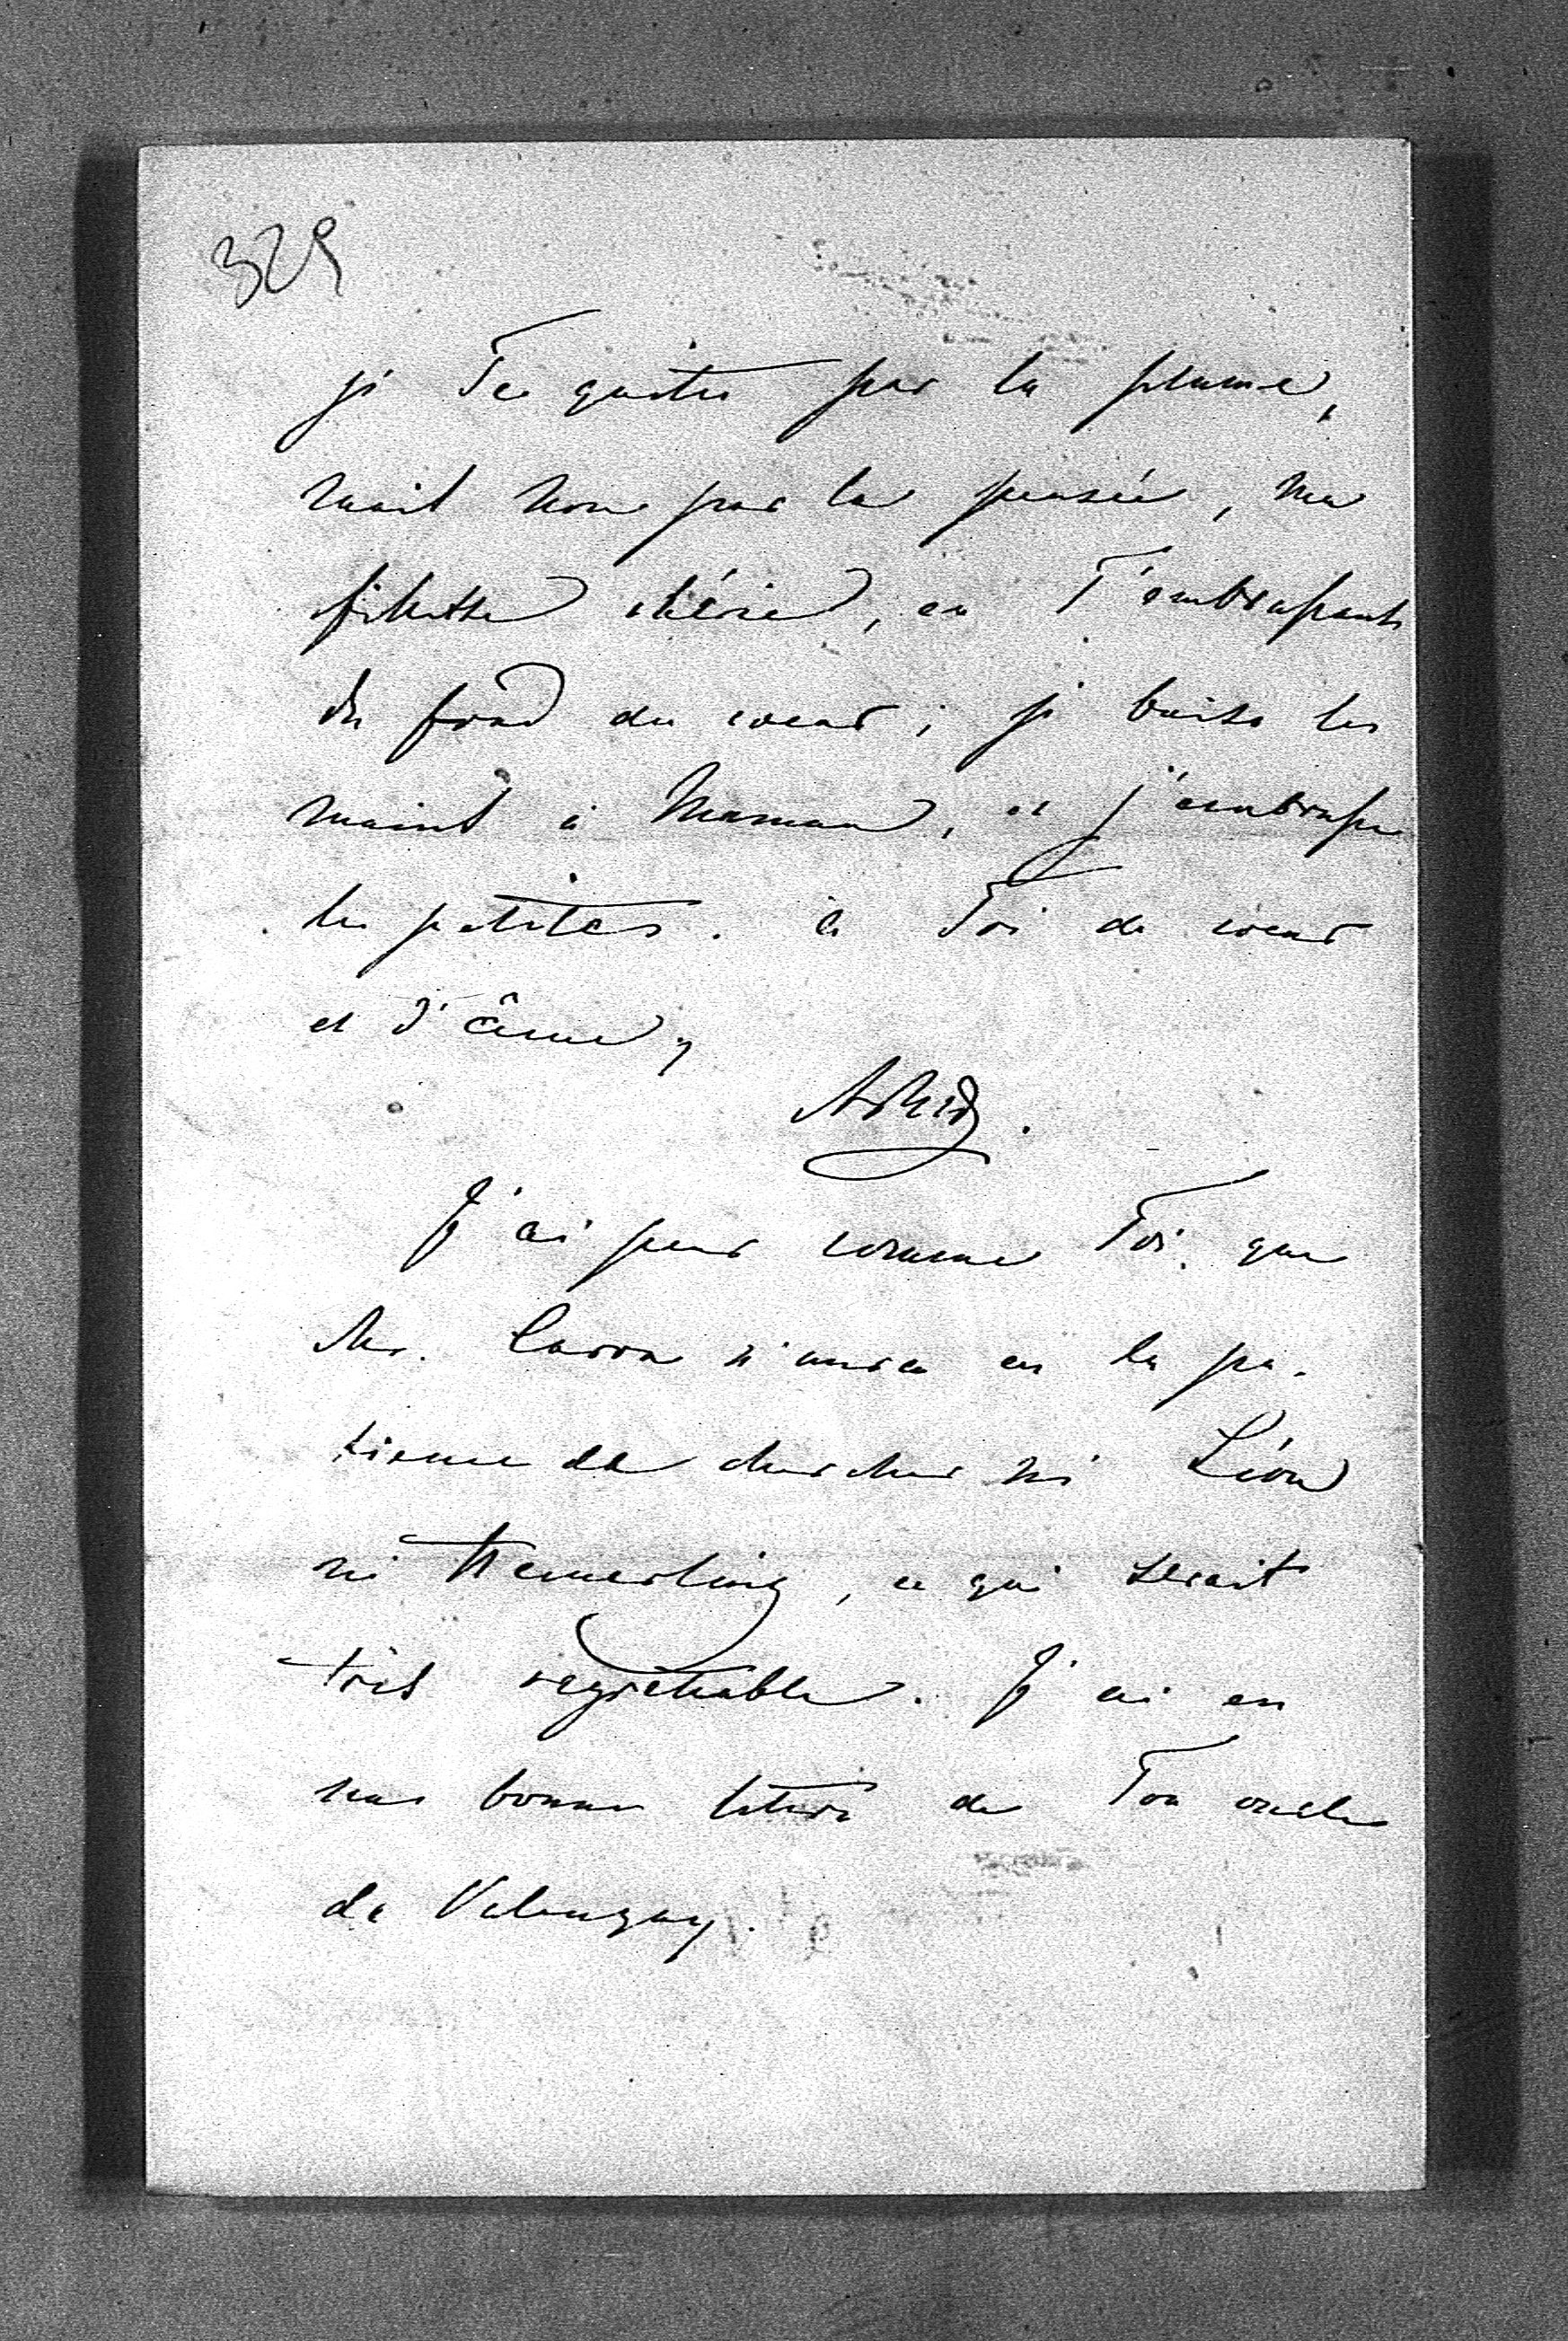 329
je Te quitte par la plume,
mais non par la pensée, ma
fillette chérie, en T'embrassant
du fond du coeur ; je baise les
mains à Maman, et j'embrasse
les petites. à Toi de coeur
et d'âme,
J'ai peur comme Toi que
Mr. n'aura eu la pa-
tience de chercher ni Léon
ni Hemerling, ce qui serait
très regrettable. J'ai eu
une bonne lettre de Ton oncle
de Valençay.